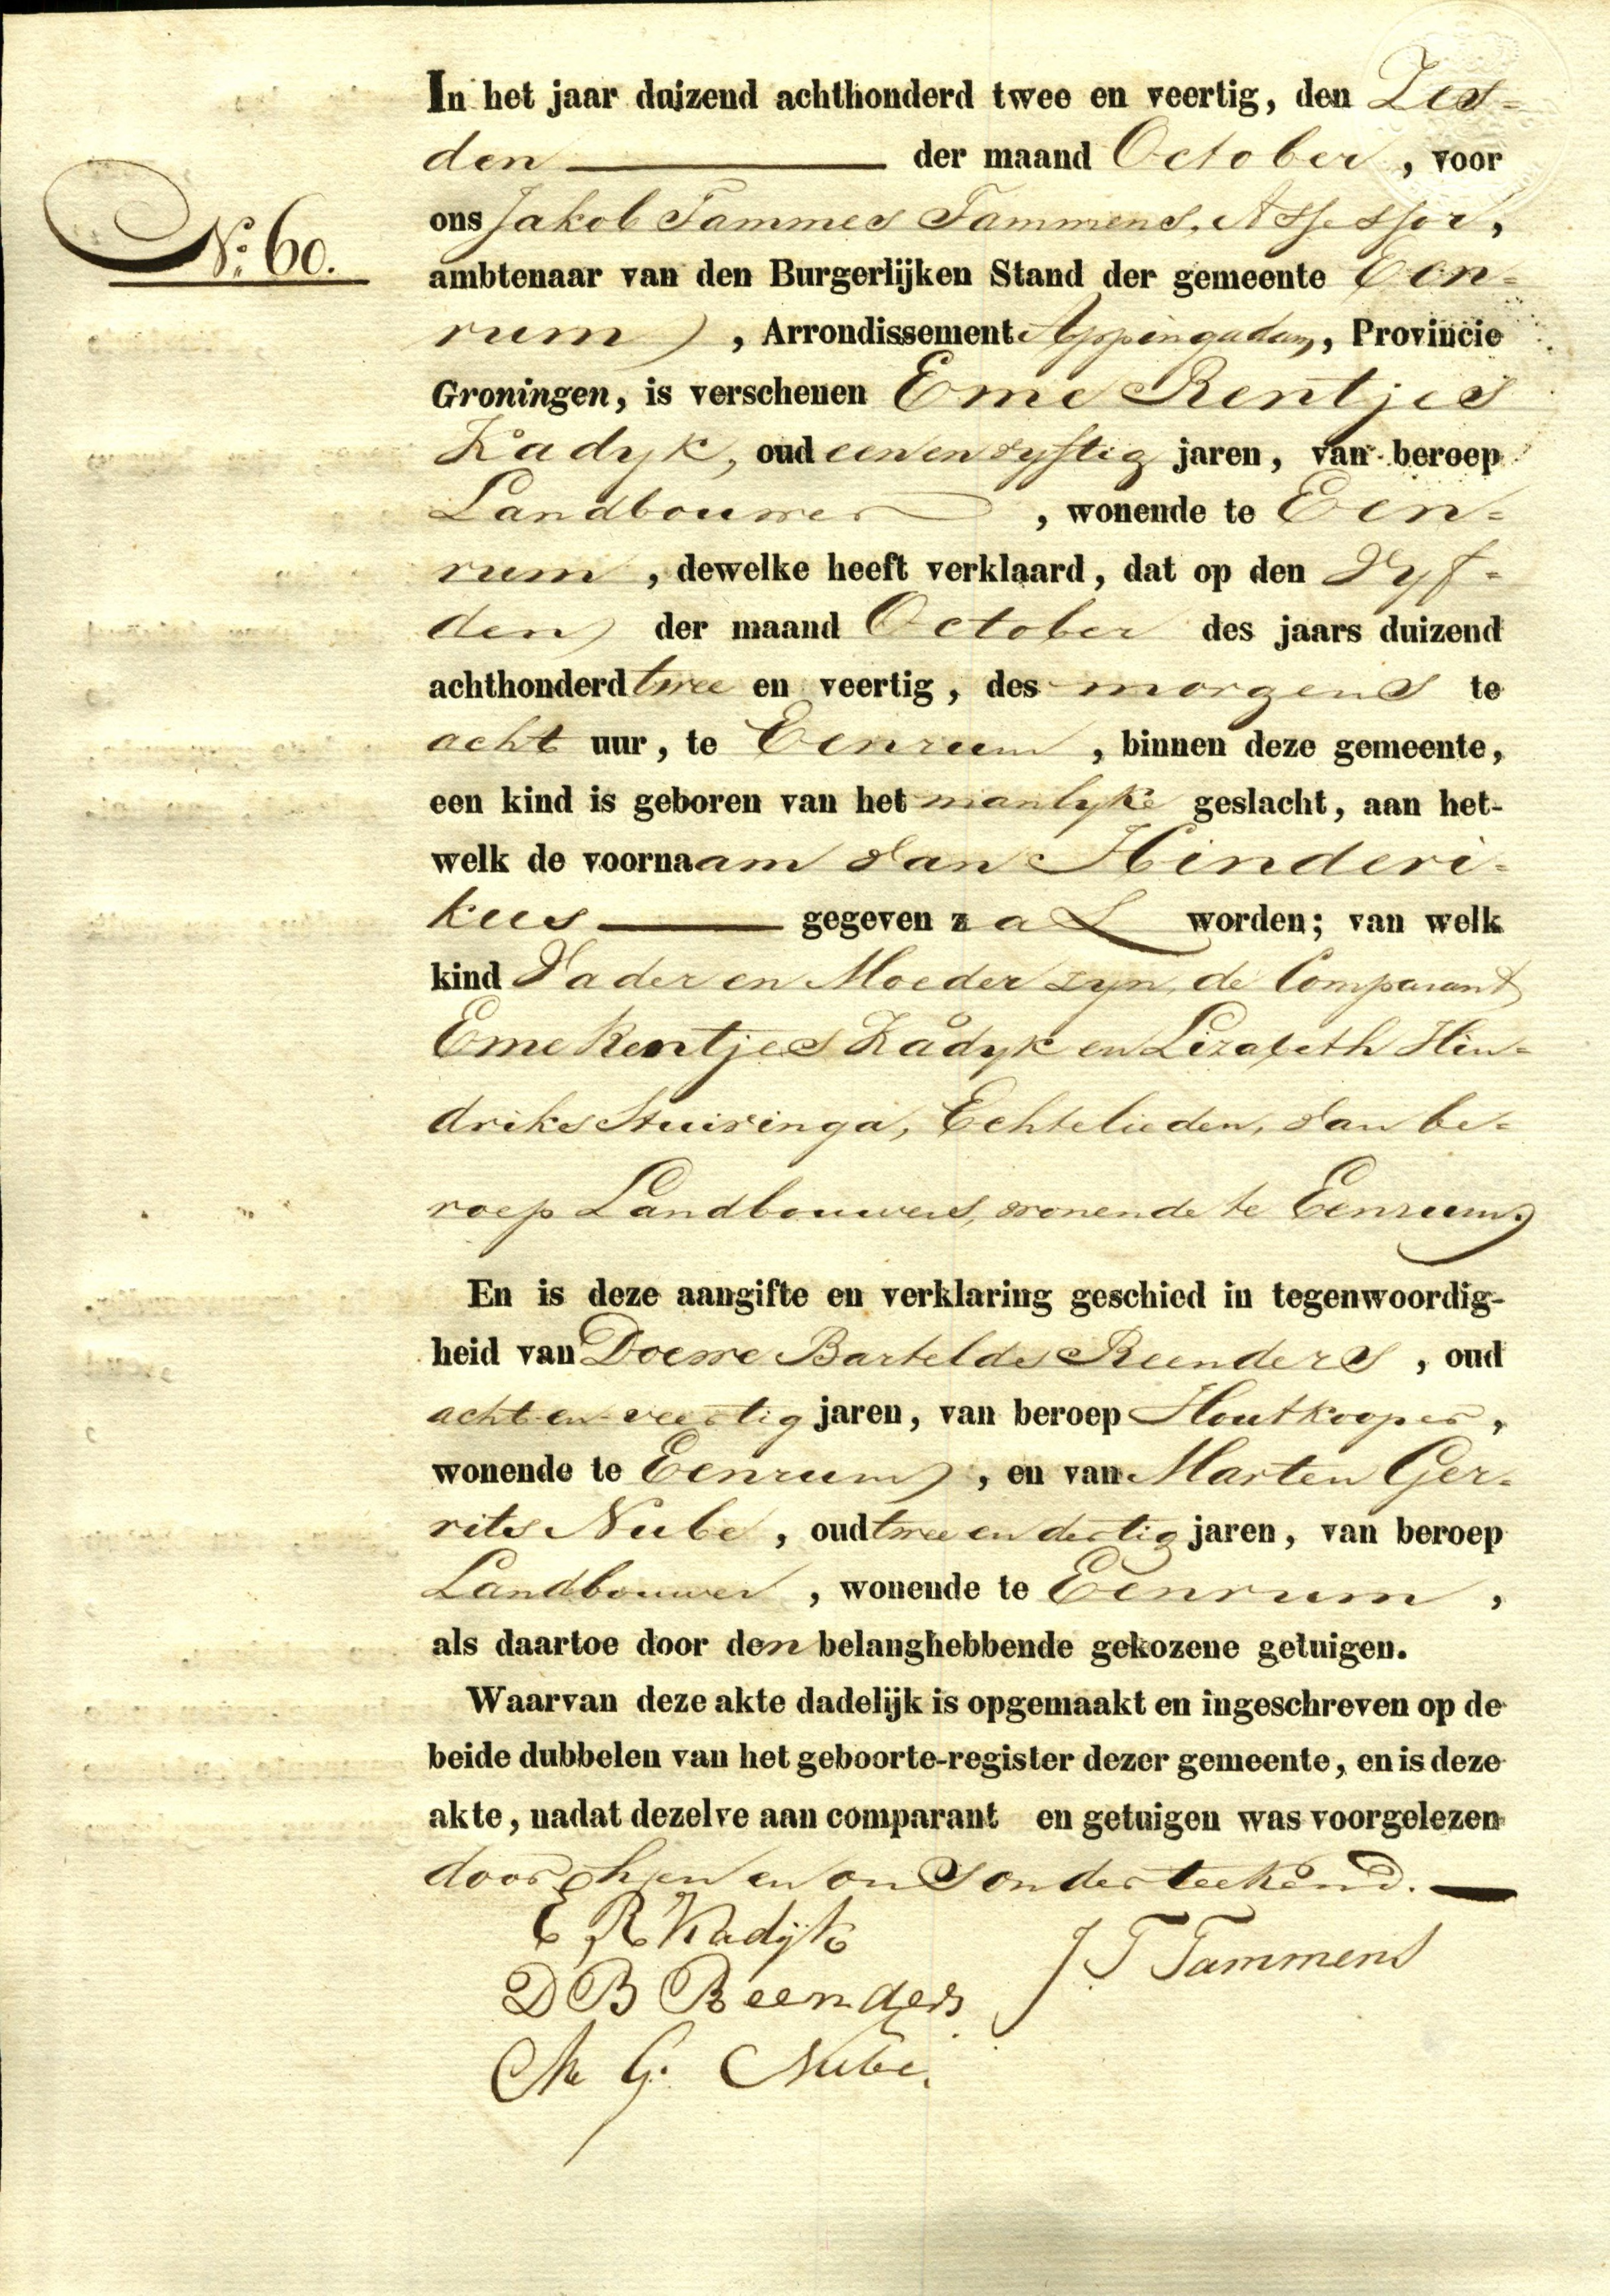 In het jaar duizend achthonderd twee en veertig, den Zes-
den der maand October, voor
ons Jakob Tammes Tammens, Assessor,
N.º 60.
ambtenaar van den Burgerlijken Stand der gemeente Een-
rum, Arrondissement Appingadam, Provincie
Groningen, is verschenen Eme Rentjes
Kadyk, oud een en vyftig jaren, van beroep
Landbouwer, wonende te Een-
rum, dewelke heeft verklaard, dat op den Vyf-
den der maand October des jaars duizend
achthonderd twee en veertig, des morgens te
acht uur, te Eenrum, binnen deze gemeente,
een kind is geboren van het manlyke geslacht, aan het-
welk de voornaam van Hinderi-
kus gegeven zal worden; van welk
kind Vader en Moeder zyn, de Comparant
Eme Rentjes Kadyk en Lizabeth Hin-
driks Huizinga, Echtelieden, van be-
roep Landbouwers, wonende te Eenrum.
En is deze aangifte en verklaring geschied in tegenwoordig-
heid van Doewe Bartelds Reenders, oud
acht en veertig jaren, van beroep Houtkooper,
wonende te Eenrum, en van Marten Ger-
rits Nube, oud twee en dertig jaren, van beroep
Landbouwer, wonende te Eenrum,
als daartoe door den belanghebbende gekozene getuigen.
Waarvan deze akte dadelijk is opgemaakt en ingeschreven op de
beide dubbelen van het geboorte-register dezer gemeente, en is deze
akte, nadat dezelve aan comparant en getuigen was voorgelezen
door hen en ons onderteekend.
E R Kadijk
J T Tammens
D B Reenders
M G. Nube.